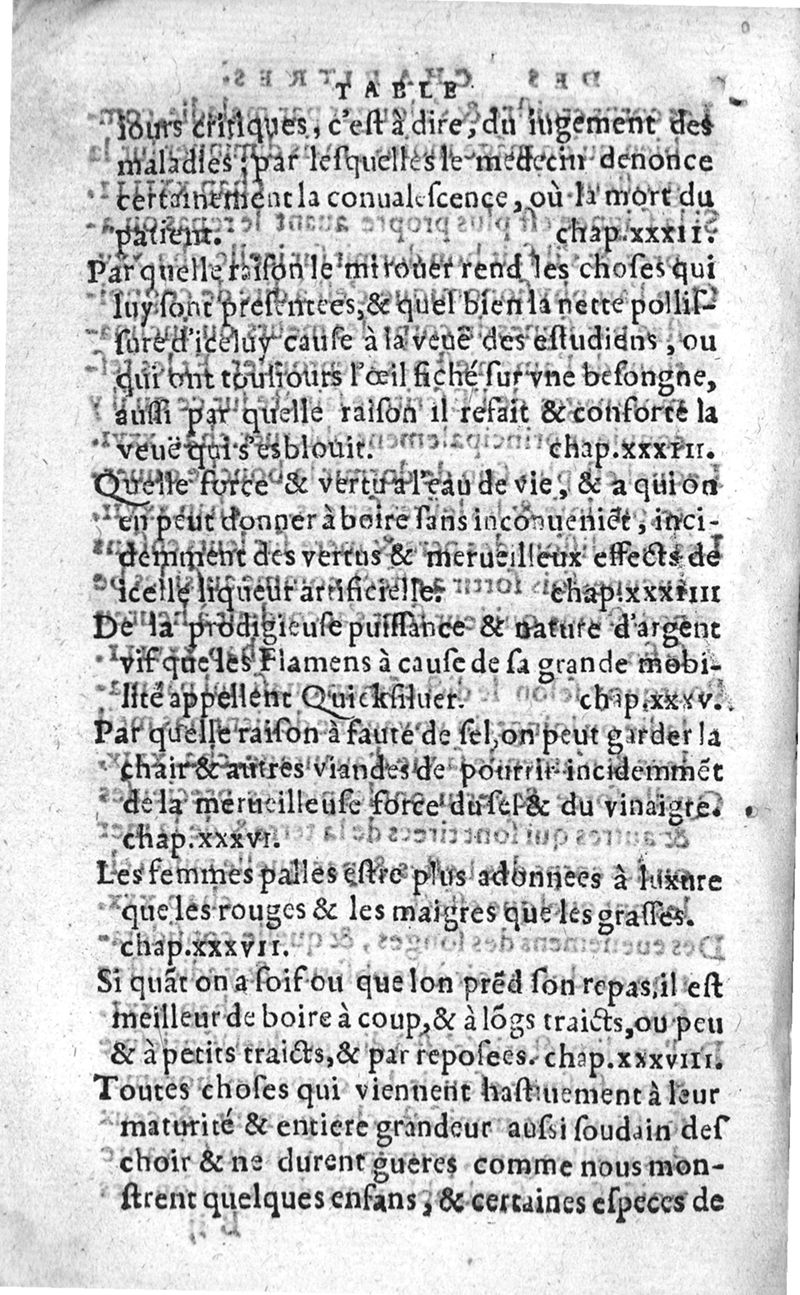 TABLE
iours critiques, c'est à dire, du iugement des
maladies, par lesquelles le medecin denonce
certainement la conualescence, où la mort du
patient. chap.xxxii.
Par quelle raison le mirouer rend les choses qui
luy sont presentees, & quel bien la nette pollis-
sure d'iceluy cause à la veuë des estudiens, ou
qui ont tousiours l'œil fiché sur vne besongne,
aussi par quelle raison il refait & conforte la
veuë qui s'esblouit. chap.xxxiii.
Quelle force & vertu a l'eau de vie, & a qui on
en peut donner à boire sans inconueniẽt, inci-
demment des vertus & merueilleux effects de
icelle liqueur artificielle. chap.xxxiiii
De la prodigieuse puissance & nature d'argent
vif que les Flamens à cause de sa grande mobi-
lité appellent Quicksiluer. chap.xxxv.
Par quelle raison à faute de sel, on peut garder la
chair & autres viandes de pourrir incidemmẽt
de la merueilleuse force du sel & du vinaigre.
chap.xxxvi.
Les femmes palles estre plus adonnees à luxure
que les rouges & les maigres que les grasses.
chap.xxxvii.
Si quãt on a soif ou que lon prẽd son repas, il est
meilleur de boire à coup, & à lõgs traicts, ou peu
& à petits traicts, & par reposees. chap.xxxviii.
Toutes choses qui viennent hastiuement à leur
maturité & entiere grandeur aussi soudain des
choir & ne durent gueres comme nous mon-
strent quelques enfans, & certaines especes de